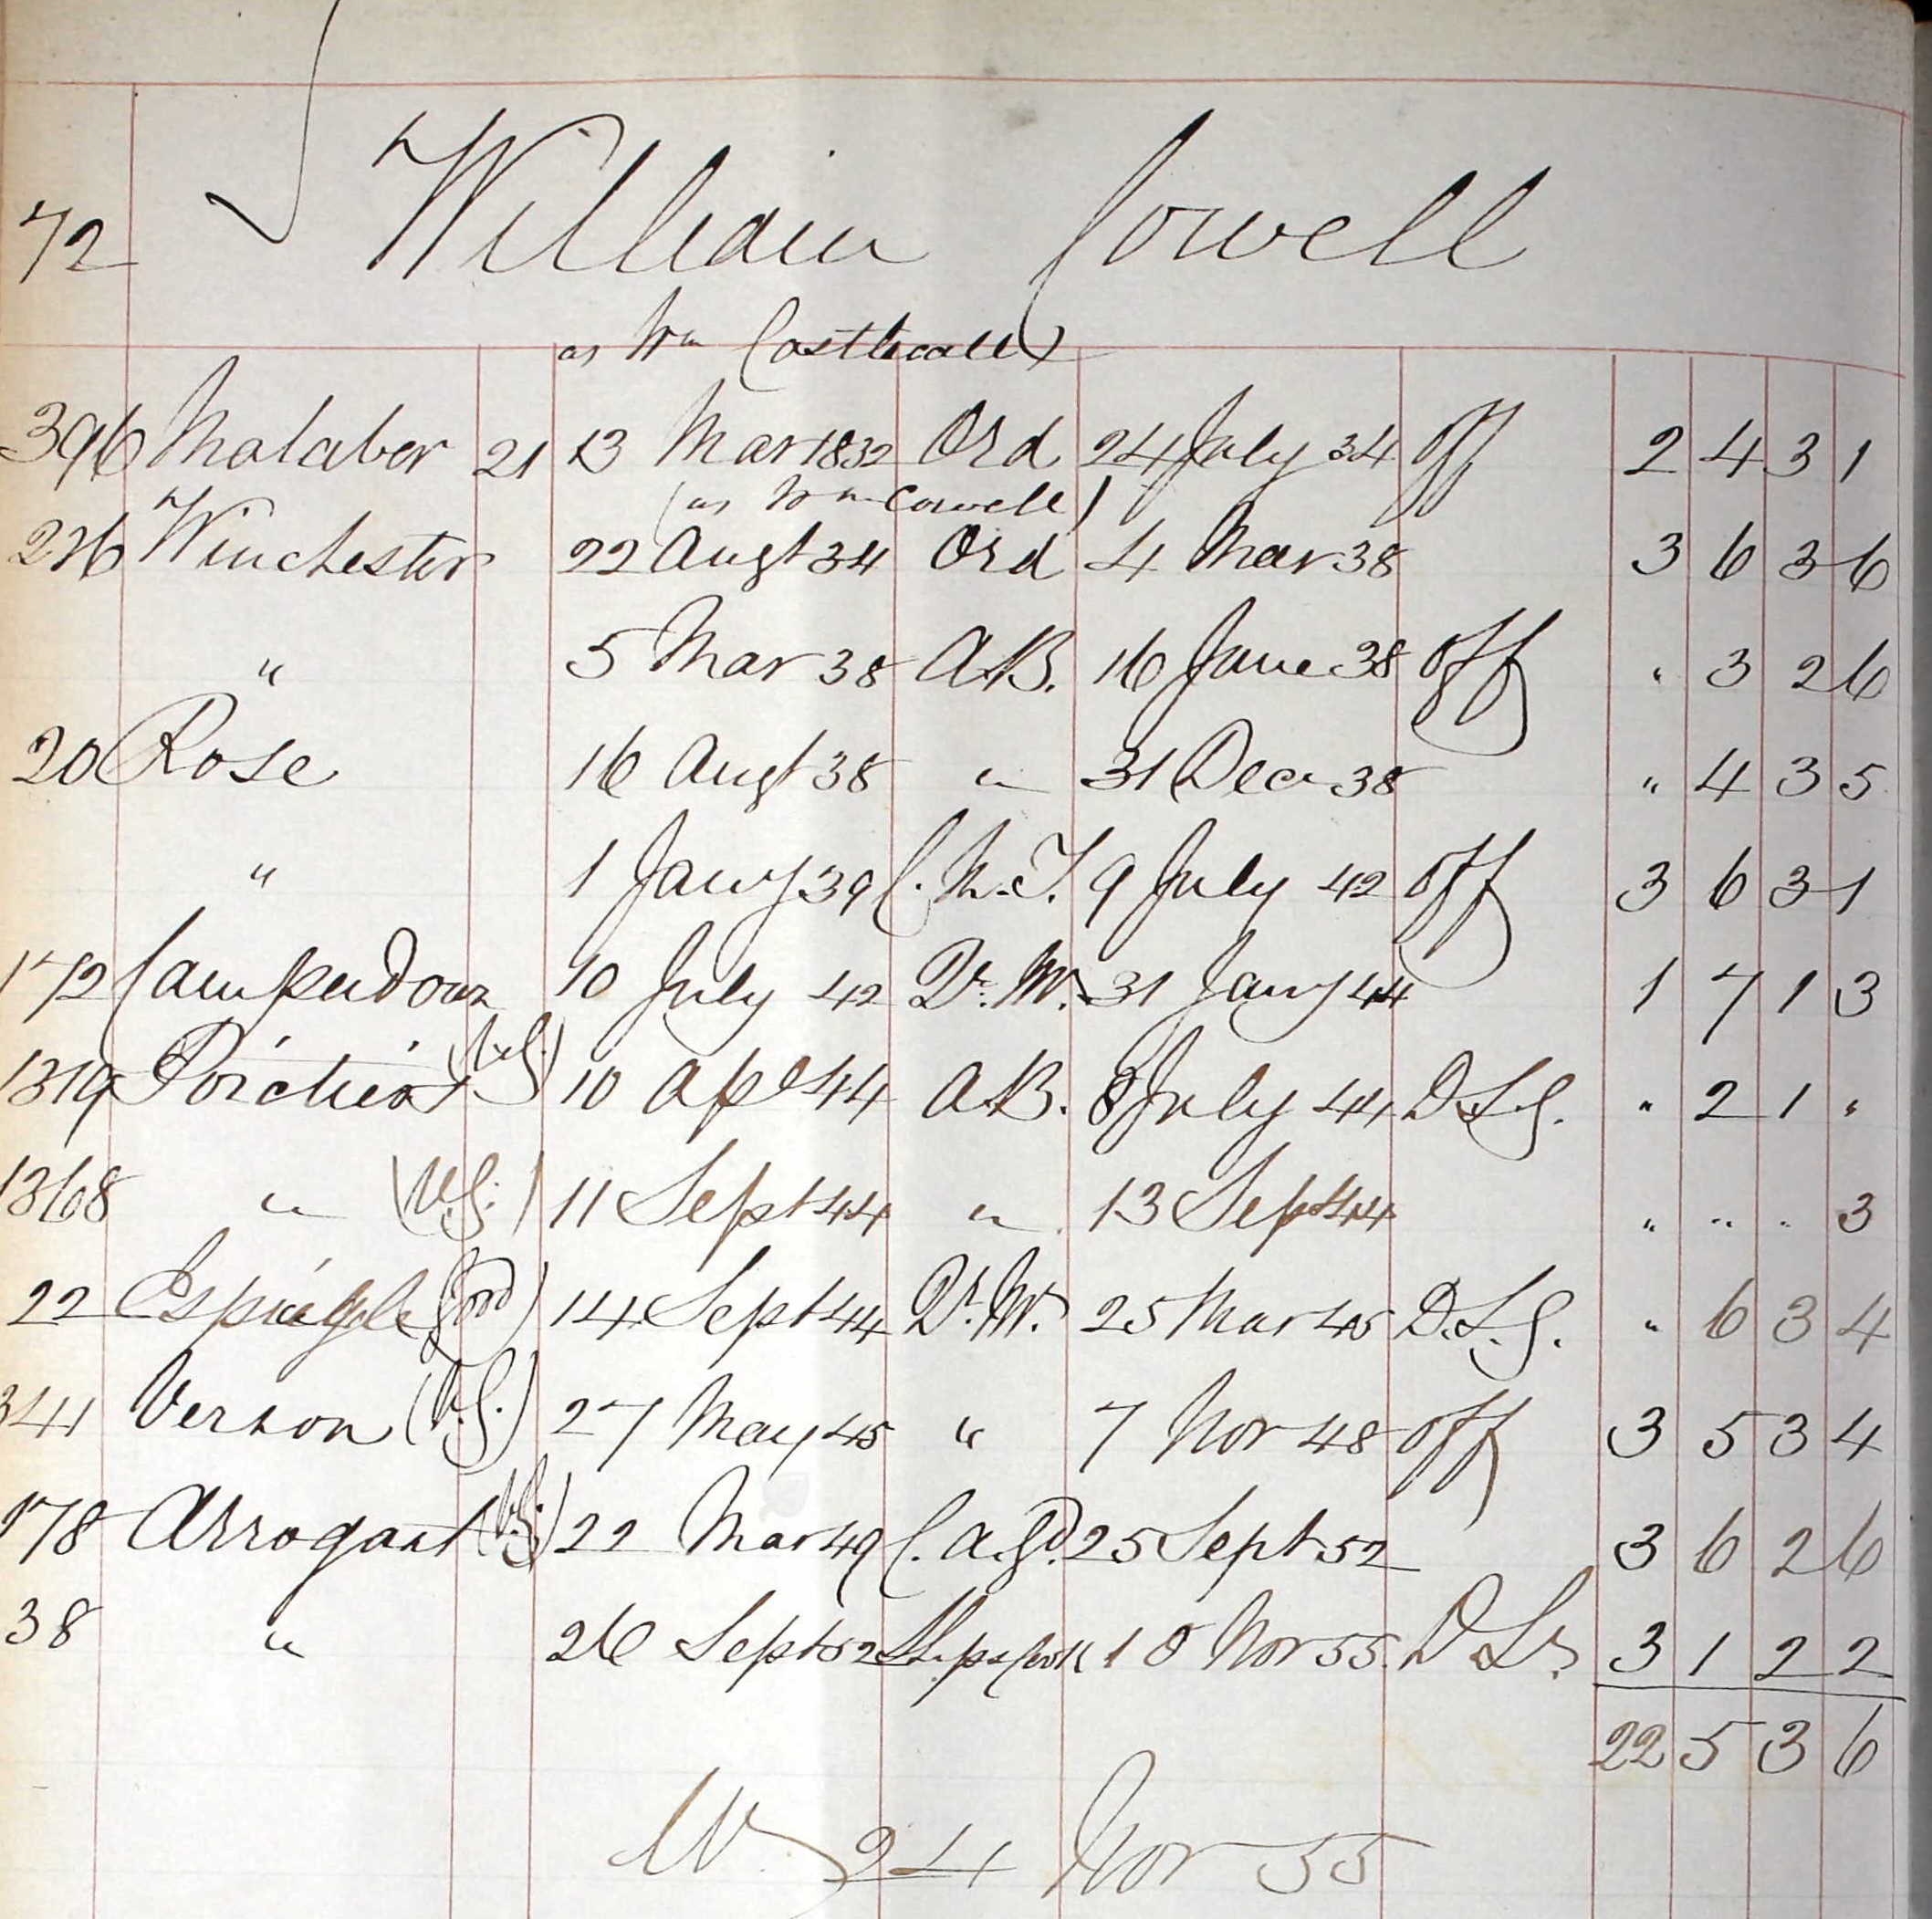 72 William Cowell
as Wm Castlecall
396 Malaber 21 13 Mar 1832 Ord 24 July 34 off 2 4 3 1
(as Wm Cowell)
226 Winchester 22 Augt 34 Ord 4 Mar 38 3 6 3 6
" 5 Mar 38 A.B. 16 June 38 off " 3 2 6
20 Rose 16 Augt 38 " 31 Decr 38 " 4 3 5
" 1 Jany 39 C.M.T. 9 July 42 off 3 6 3 1
172 Camperdown 10 July 42 Dr. M. 31 Jany 44 1 7 1 3
1319 Poictiers (V.G.) 10 Apl 44 A.B. 8 July 44 D.S.G. " 2 1 "
1368 " (V.G.) 11 Sept 44 " 13 Sept 44 " " " 3
22 Espiegle (Good) 14 Sept 44 Dr. M. 25 Mar 45 D.S.G. " 6 3 4
344 Vernon (V.G.) 27 May 45 " 7 Nov 48 off 3 5 3 4
178 Arrogant (V.G.) 22 Mar 49 C.A.Gd. 25 Sept 52 3 6 2 6
38 " 26 Sept 52 Ships Cook 10 Nov 55 3 1 2 2
22 5 3 6
24 Nov 55